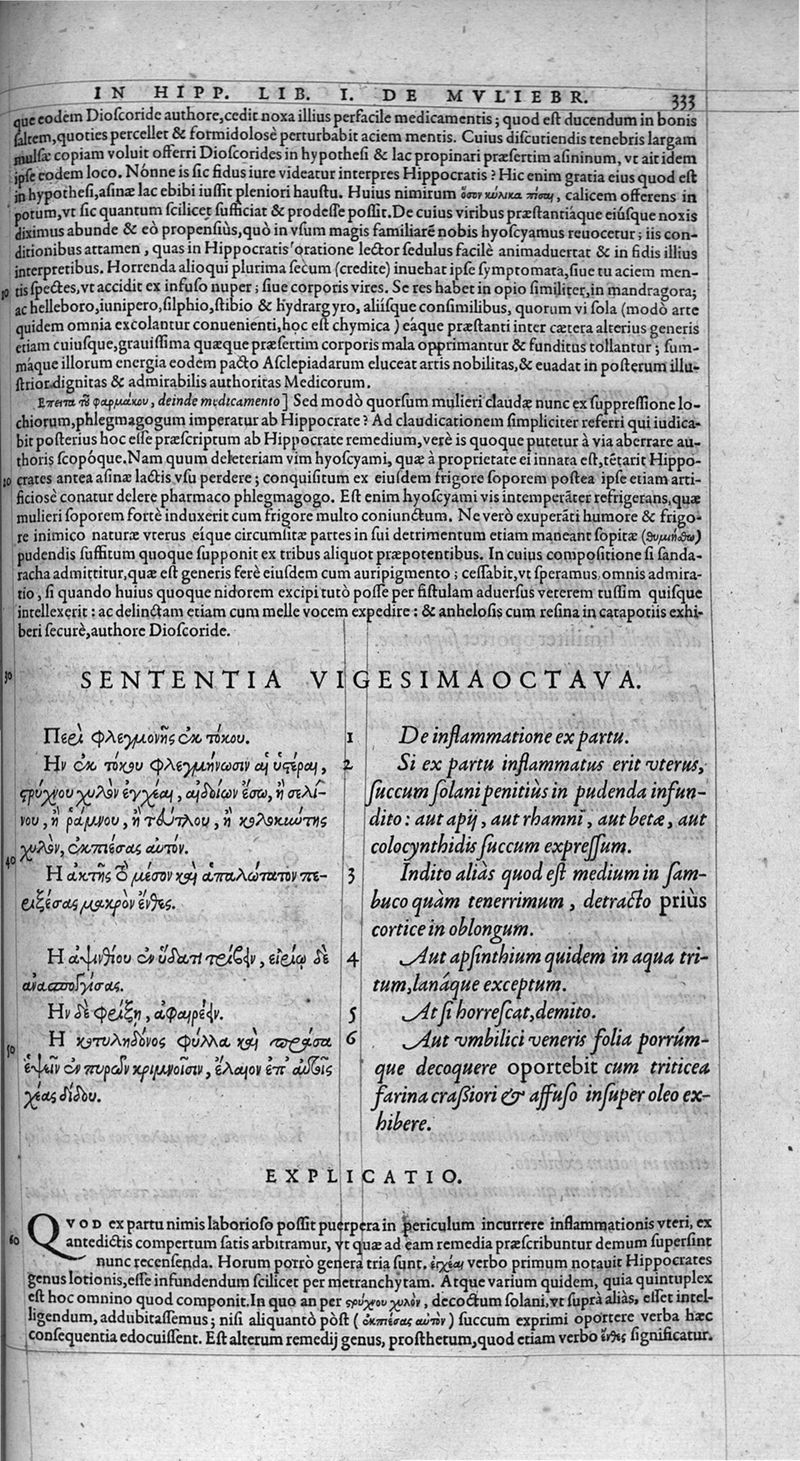 IN HIPP. LIB. I. DE MVLIEBR. 333
que eodem Dioſcoride authore,cedit noxa illius perfacile medicamentis; quod eſt ducendum in bonis
ſaltem,quoties percellet & formidolosè perturbabit aciem mentis. Cuius diſcutiendis tenebris largam
mulſæ copiam voluit offerri Dioſcorides in hypotheſi & lac propinari præſertim aſininum, vt ait idem
ipſe eodem loco. Nónne is ſic fidus iure videatur interpres Hippocratis? Hic enim gratia eius quod eſt
in hypotheſi,aſinæ lac ebibi iuſſit pleniori hauſtu. Huius nimirum ὅσον κύλικα πῖσαι, calicem offerens in
potum,vt ſic quantum ſcilicet ſufficiat & prodeſſe poſſit.De cuius viribus præſtantiáque eiúſque noxis
diximus abunde & eò propenſiùs,quò in vſum magis familiarē nobis hyoſcyamus reuocetur; iis con-
ditionibus attamen, quas in Hippocratis oratione lector ſedulus facilè animaduertat & in fidis illius
interpretibus. Horrenda alioqui plurima ſecum (credite) inuehat ipſe ſymptomata,ſiue tu aciem men-
10 tis ſpectes,vt accidit ex infuſo nuper; ſiue corporis vires. Se res habet in opio ſimiliter,in mandragora;
ac helleboro,iunipero,ſilphio,ſtibio & hydrargyro, aliíſque conſimilibus, quorum vi ſola (modò arte
quidem omnia excolantur conuenienti,hoc eſt chymica) eáque præſtanti inter cætera alterius generis
etiam cuiuſque,grauiſſima quæque præſertim corporis mala opprimantur & funditus tollantur; ſum-
máque illorum energia eodem pacto Aſclepiadarum eluceat artis nobilitas,& euadat in poſterum illu-
ſtrior dignitas & admirabilis authoritas Medicorum.
Επειτα τοῦ φαρμάκου, deinde medicamento] Sed modò quorſum mulieri claudæ nunc ex ſuppreſſione lo-
chiorum,phlegmagogum imperatur ab Hippocrate? Ad claudicationem ſimpliciter referri qui iudica-
bit poſterius hoc eſſe præſcriptum ab Hippocrate remedium,verè is quoque putetur à via aberrare au-
thoris ſcopóque.Nam quum deleteriam vim hyoſcyami, quæ à proprietate ei innata eſt,tētarit Hippo-
20 crates antea aſinæ lactis vſu perdere; conquiſitum ex eiuſdem frigore ſoporem poſtea ipſe etiam arti-
ficiosè conatur delere pharmaco phlegmagogo. Eſt enim hyoſcyami vis intemperāter refrigerans,quæ
mulieri ſoporem fortè induxerit cum frigore multo coniunctum. Ne verò exuperāti humore & frigo-
re inimico naturæ vterus eíque circumſitæ partes in ſui detrimentum etiam maneant ſopitæ (θυμιήσθω)
pudendis ſuffitum quoque ſupponit ex tribus aliquot præpotentibus. In cuius compoſitione ſi ſanda-
racha admittitur,quæ eſt generis ferè eiuſdem cum auripigmento; ceſſabit,vt ſperamus, omnis admira-
tio, ſi quando huius quoque nidorem excipi tutò poſſe per fiſtulam aduerſus veterem tuſſim quiſque
intellexerit: ac delinctam etiam cum melle vocem expedire: & anheloſis cum reſina in catapotiis exhi-
beri ſecurè,authore Dioſcoride.
30 SENTENTIA VIGESIMAOCTAVA.
Περὶ φλεγμονῆς ἐκ τόκου.
Ην ἐκ τόκου φλεγμήνωσιν αἱ ὑστέραι,
στρύχνου χυλὸν ἐγχέαι, αἰδοίων ἔσω, ἢ σελί-
νου, ἢ ῥάμνου, ἢ τεύτλου, ἢ κολοκιώτης
40 χυλὸν, ἐκπιέσας αὐτόν.
Η ἀκτῆς τὸ μέσον καὶ ἁπαλώτατον πε-
ριξέσας μακρὸν ἔνθες.
Η ἀψινθίου ἐν ὕδατι τρίβειν, εἰρίῳ δὲ
ἀνασπογγίσας.
Ην δὲ φρίξῃ, ἀφαιρέειν.
50 Η κοτυληδόνος φύλλα καὶ πράσα
ἑψῶν ἐν πυρῶν κρίμνοισιν, ἔλαιον ἐπ' αὐτοῖς
χέας δίδου.
1 De inflammatione ex partu.
2 Si ex partu inflammatus erit vterus,
ſuccum ſolani penitiùs in pudenda infun-
dito: aut apij, aut rhamni, aut betæ, aut
colocynthidis ſuccum expreſſum.
3 Indito aliàs quod eſt medium in ſam-
buco quàm tenerrimum, detracto priùs
cortice in oblongum.
4 Aut apſinthium quidem in aqua tri-
tum,lanáque exceptum.
5 At ſi horreſcat,demito.
6 Aut vmbilici veneris folia porrúm-
que decoquere oportebit cum triticea
farina craßiori & affuſo inſuper oleo ex-
hibere.
EXPLICATIO.
QVOD ex partu nimis laborioſo poſſit puerpera in periculum incurrere inflammationis vteri, ex
60 antedictis compertum ſatis arbitramur, vt quæ ad eam remedia præſcribuntur demum ſuperſint
nunc recenſenda. Horum porrò genera tria ſunt. ἐγχέαι verbo primum notauit Hippocrates
genus lotionis,eſſe infundendum ſcilicet per metranchytam. Atque varium quidem, quia quintuplex
eſt hoc omnino quod componit.In quo an per στρύχνου χυλὸν, decoctum ſolani,vt ſuprà aliàs, eſſet intel-
ligendum, addubitaſſemus; niſi aliquantò pòſt (ἐκπιέσας αὐτὸν) ſuccum exprimi oportere verba hæc
conſequentia edocuiſſent. Eſt alterum remedij genus, proſthetum,quod etiam verbo ἔνθες ſignificatur.